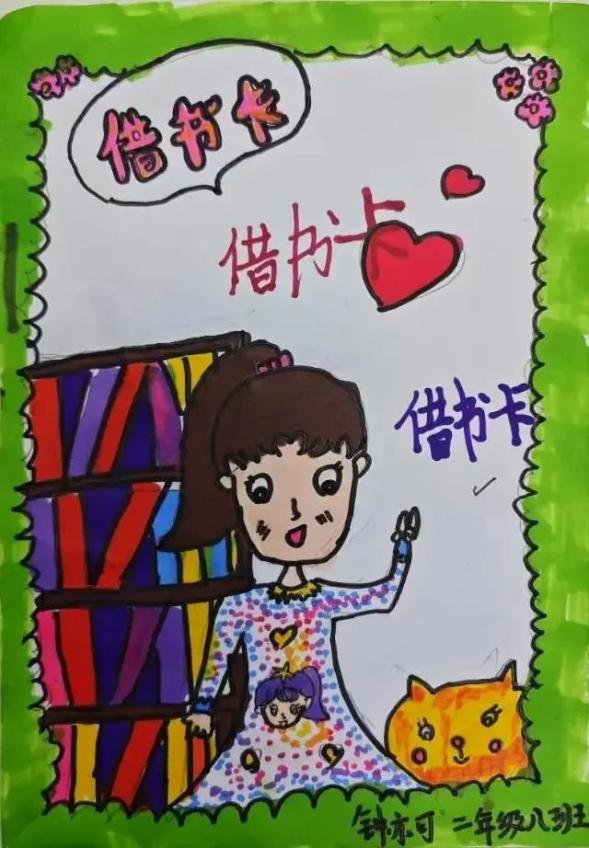 借书卡
借书卡
借书卡
钟亦可 二年级八班